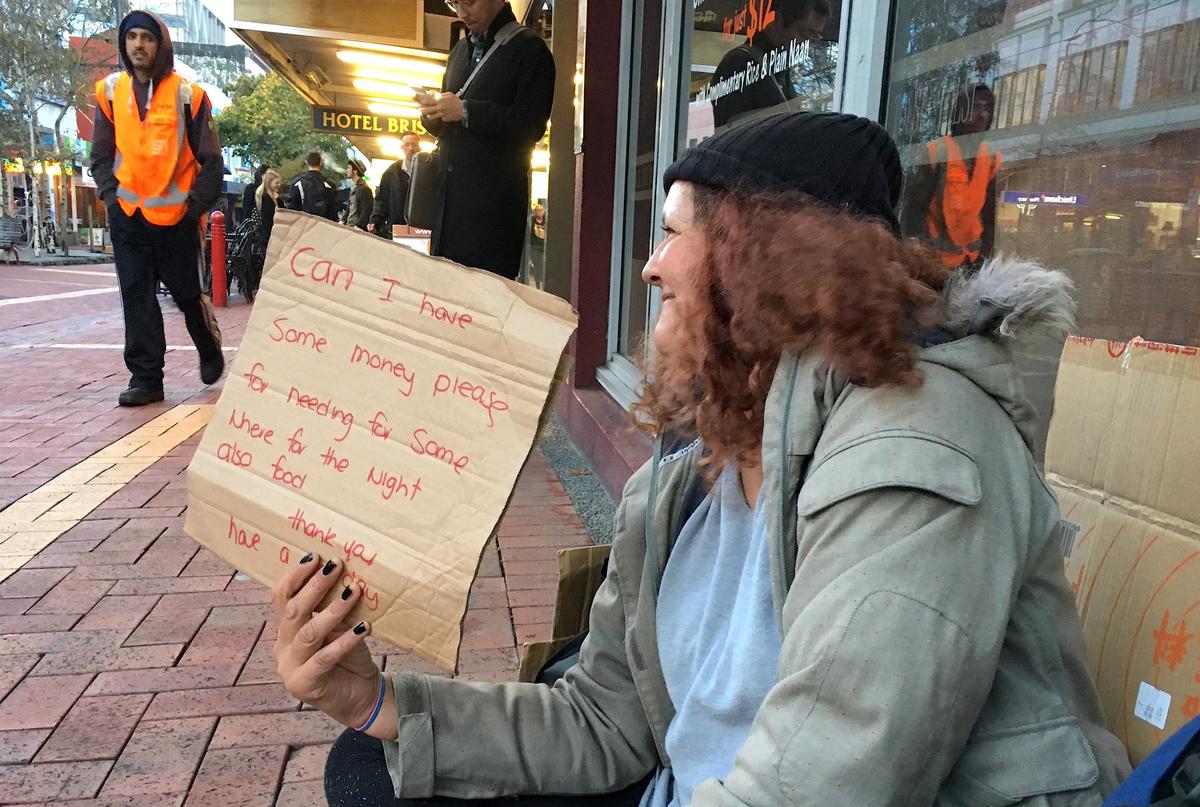 for just $12
with Complimentary Rice & Plain Naan
HOTEL BRIS
Can I have
Some money please
for needing for Some
Where for the Night
also food
thank you
have a day